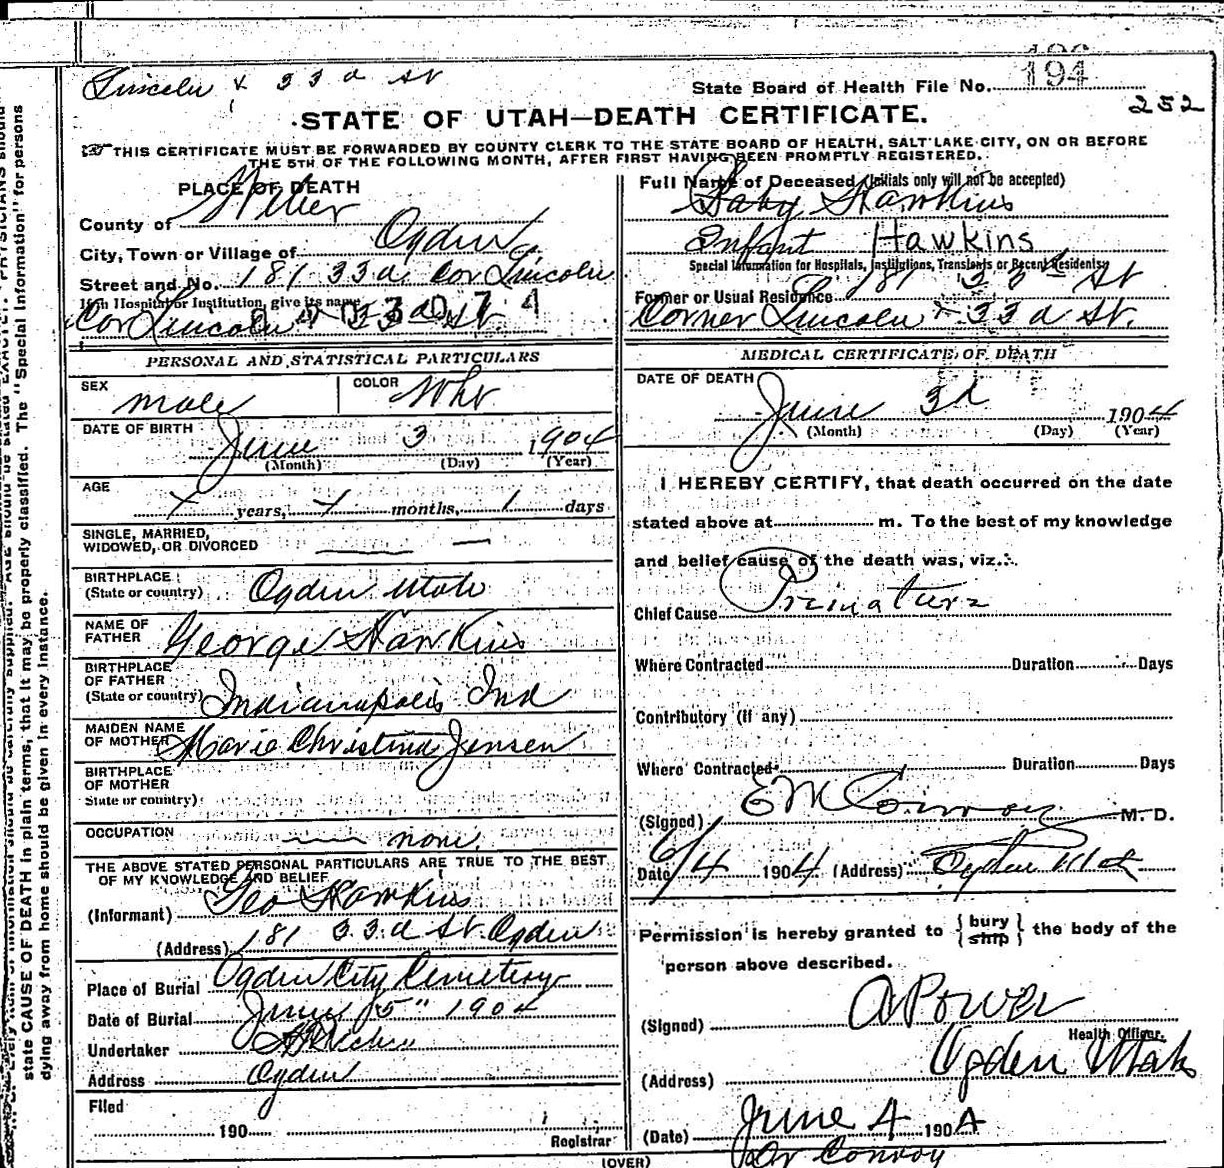 Lincoln & 33d St
State Board of Health File No. 194
252
STATE OF UTAH—DEATH CERTIFICATE.
THIS CERTIFICATE MUST BE FORWARDED BY COUNTY CLERK TO THE STATE BOARD OF HEALTH, SALT LAKE CITY, ON OR BEFORE
THE 5TH OF THE FOLLOWING MONTH, AFTER FIRST HAVING BEEN PROMPTLY REGISTERED.
PLACE OF DEATH
County of Weber
City, Town or Village of Ogden
Street and No. 181 33d Cor Lincoln
If in Hospital or Institution, give its name
Cor Lincoln & 33d St
Full Name of Deceased (Initials only will not be accepted)
Baby Hawkins
Infant Hawkins
Special Information for Hospitals, Institutions, Transients or Recent Residents:
Former or Usual Residence 181 33d St
Corner Lincoln & 33d St.
PERSONAL AND STATISTICAL PARTICULARS
SEX male
COLOR Wht
DATE OF BIRTH June 3 1904
(Month) (Day) (Year)
AGE
years, months, 1 days
SINGLE, MARRIED,
WIDOWED, OR DIVORCED
BIRTHPLACE
(State or country) Ogden Utah
NAME OF
FATHER George Hawkins
BIRTHPLACE
OF FATHER
(State or country) Indianapolis Ind
MAIDEN NAME
OF MOTHER Marie Christina Jensen
BIRTHPLACE
OF MOTHER
State or country)
OCCUPATION none
THE ABOVE STATED PERSONAL PARTICULARS ARE TRUE TO THE BEST
OF MY KNOWLEDGE AND BELIEF
(Informant) Geo Hawkins
(Address) 181 33d St. Ogden
Place of Burial Ogden City Cemetery
Date of Burial June 5" 1904
Undertaker
Address Ogden
Filed
190
Registrar
MEDICAL CERTIFICATE OF DEATH
DATE OF DEATH
June 3d 1904
(Month) (Day) (Year)
I HEREBY CERTIFY, that death occurred on the date
stated above at m. To the best of my knowledge
and belief cause of the death was, viz.:
Chief Cause Primature
Where Contracted Duration Days
Contributory (if any)
Where Contracted Duration Days
(Signed) E M Conroy M. D.
Date 6/4 1904 (Address) Ogden Utah
Permission is hereby granted to { bury
ship } the body of the
person above described.
(Signed) A Power
Health Officer.
(Address) Ogden Utah
(Date) June 4 1904
Dr Conroy
(OVER)
state CAUSE OF DEATH in plain terms, that it may be properly classified. The "Special Information" for persons
dying away from home should be given in every instance.